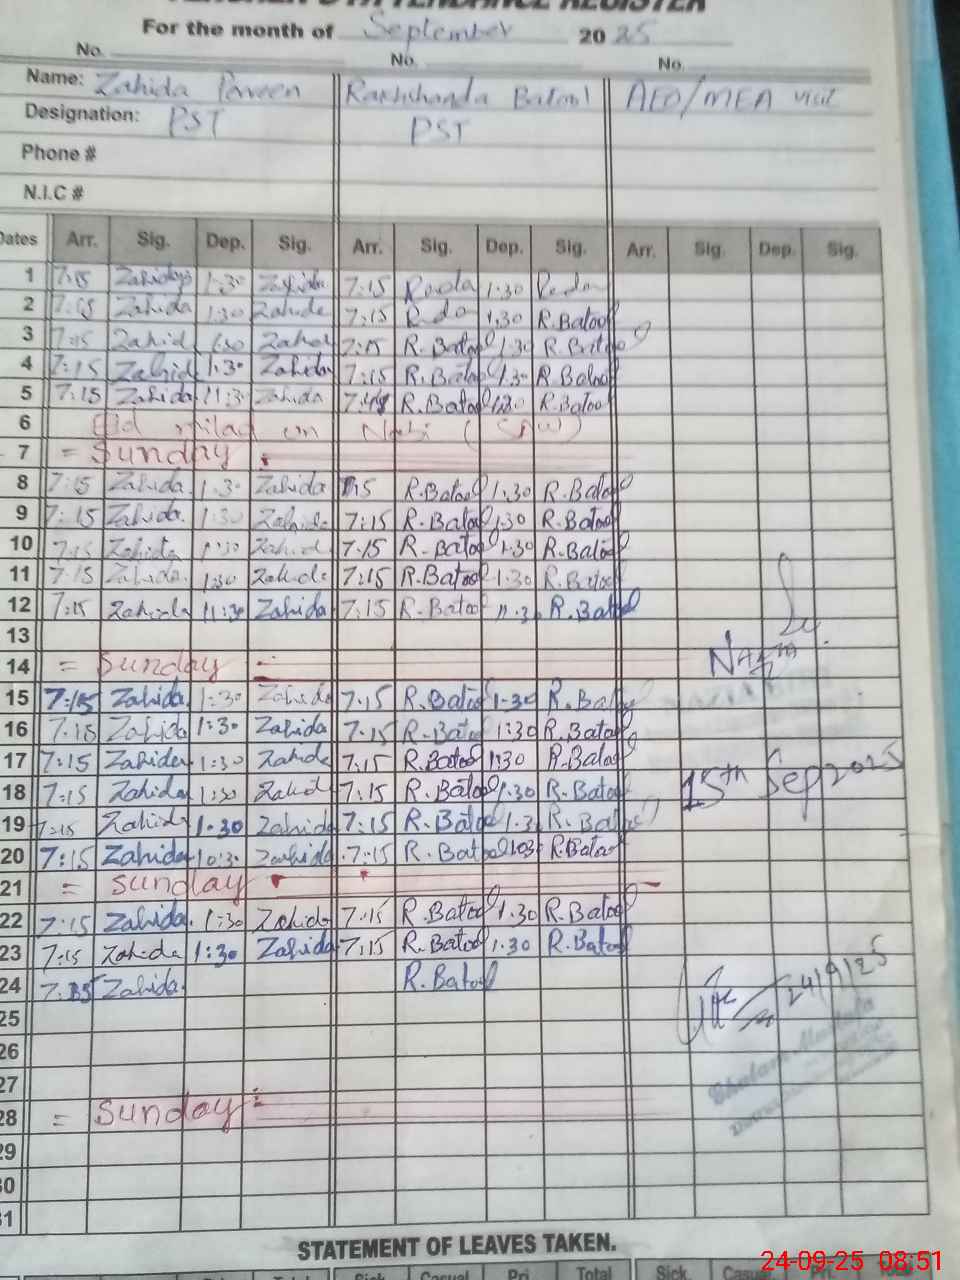 TEACHER'S ATTENDANCE REGISTER
For the month of September 2025
No. No. No.
Name: Zahida Parveen Rakhshanda Batool AEO/MEA visit
Designation: PST PST
Phone #
N.I.C #
Dates Arr. Sig. Dep. Sig. Arr. Sig. Dep. Sig. Arr. Sig. Dep. Sig.
1 7:15 Zahida 1:30 Zahida 7:15 1.30
2 7:15 Zahida 1:30 Zahida 7:15 1.30 R.Batool
3 7:15 Zahid 1:30 Zahid 7:15 R.Batool 1.30 R.Batool
4 7:15 Zahid 1:30 Zahida 7:15 R.Batool 1.30 R.Batool
5 7:15 Zahida 1:30 Zahida R.Batool 1:30 R.Batool
6 Eid milad un Nabi (SAW)
7 = Sunday
8 7:15 Zahida 1:30 Zahida R.Batool 1.30 R.Batool
9 7:15 Zahida 1:30 Zahida 7:15 R.Batool 1.30 R.Batool
10 7:15 Zahida 1:30 Zahid 7.15 R.Batool 1.30 R.Batool
11 7:15 Zahida 1:30 Zahida 7:15 R.Batool 1.30 R.Batool
12 7:15 Zahida 11:30 Zahida 7:15 R.Batool 11.30 R.Batool
13
14 = Sunday
15 7:15 Zahida 1:30 Zahida 7.15 R.Batool 1.30 R.Batool
16 7.15 Zahida 1:30 Zahida 7.15 R.Batool 1:30 R.Batool
17 7:15 Zahida 1:30 Zahida 7:15 R.Batool 1:30 R.Batool
18 7:15 Zahida 1:30 Zahid 7:15 R.Batool 1.30 R.Batool 15th Sep 2025
19 7:15 Zahida 1.30 Zahida 7:15 R.Batool 1.30 R.Batool
20 7:15 Zahida 10:30 Zahida 7:15 R.Batool 1030 R.Batool
21 = Sunday
22 7:15 Zahida 1:30 Zahida 7.15 R.Batool 1.30 R.Batool
23 7:15 Zahida 1:30 Zahida 7:15 R.Batool 1.30 R.Batool
24 Zahida R.Batool 24/9/25
25
26
27
28 = Sunday
29
30
31
STATEMENT OF LEAVES TAKEN.
24-09-25 08:51
Total Sick Casual Pri Total Sick. Casual